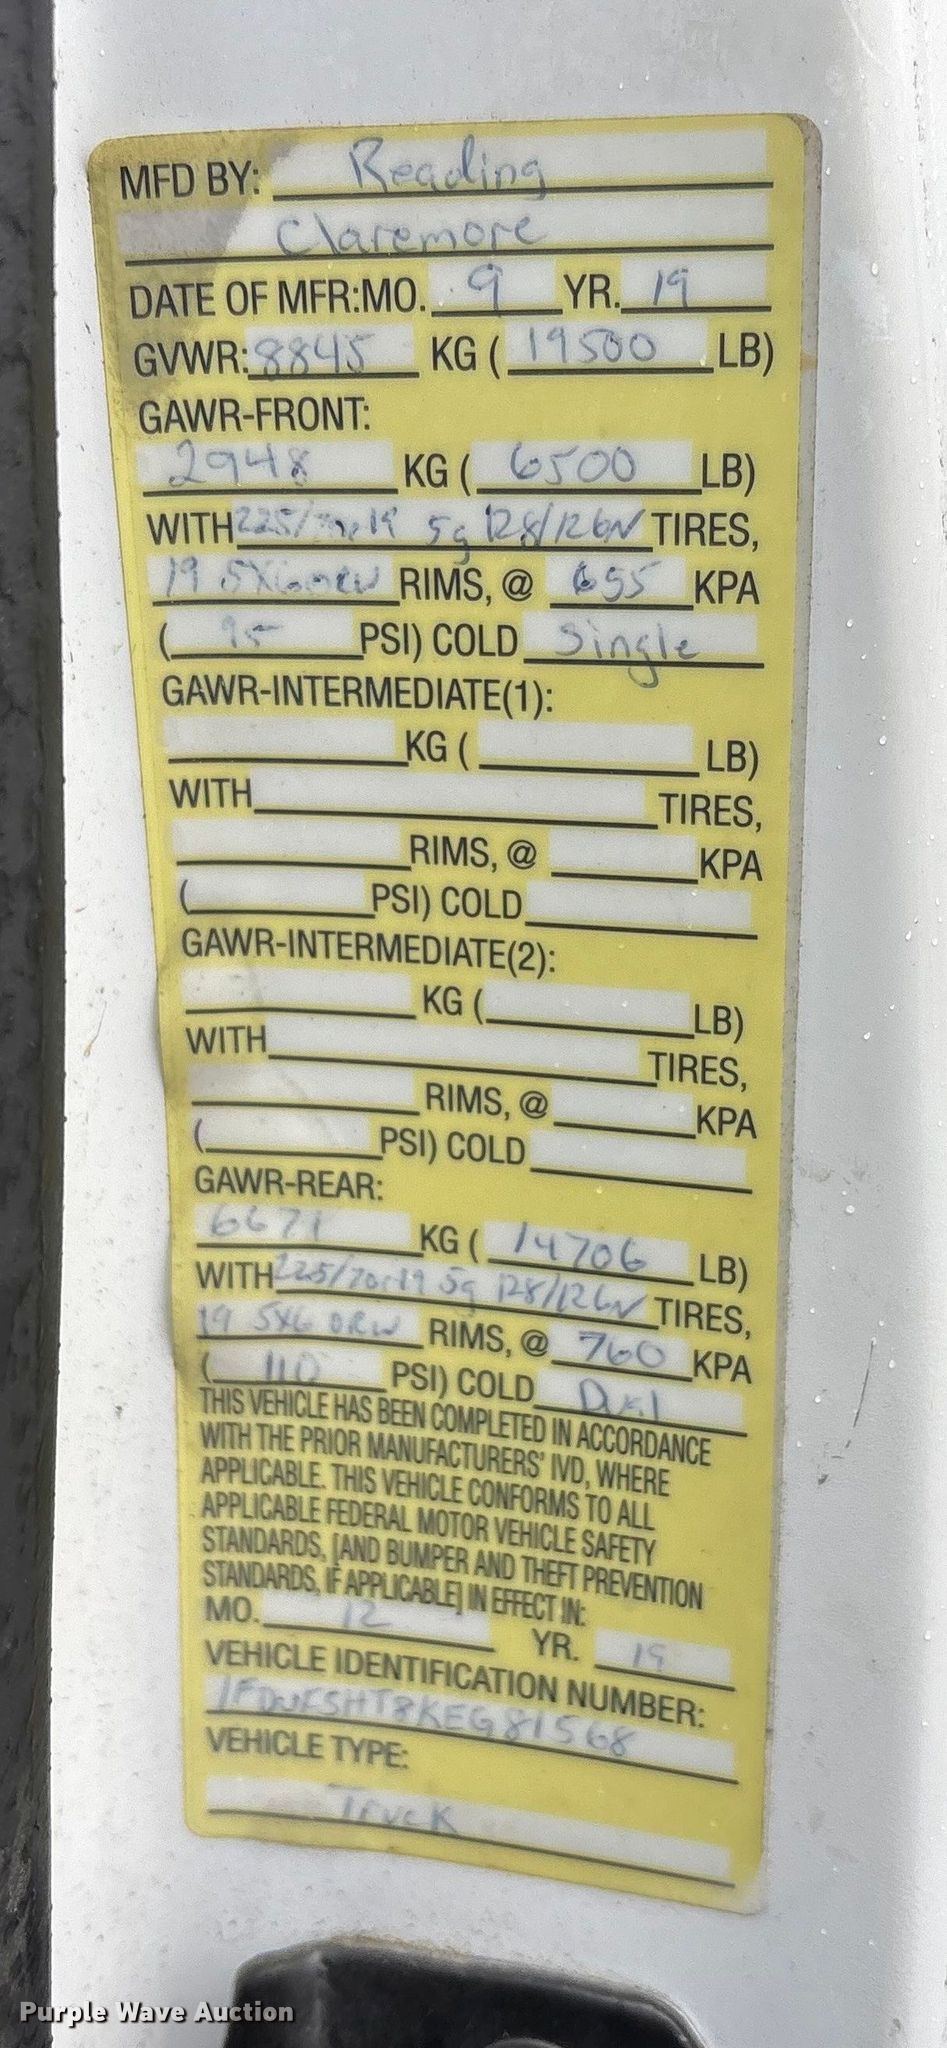 MFD BY: Reading
Claremore
DATE OF MFR:MO. 9 YR. 19
GVWR: 8845 KG ( 19500 LB)
GAWR-FRONT:
2948 KG ( 6500 LB)
WITH 225/70r19 5g 128/126N TIRES,
19 5X6 ORW RIMS, @ 655 KPA
( 95 PSI) COLD Single
GAWR-INTERMEDIATE(1):
KG ( LB)
WITH TIRES,
RIMS, @ KPA
( PSI) COLD
GAWR-INTERMEDIATE(2):
KG ( LB)
WITH TIRES,
RIMS, @ KPA
( PSI) COLD
GAWR-REAR:
6671 KG ( 14706 LB)
WITH 225/70r19 5g 128/126N TIRES,
19 5X6 ORW RIMS, @ 760 KPA
( 110 PSI) COLD Dual
THIS VEHICLE HAS BEEN COMPLETED IN ACCORDANCE
WITH THE PRIOR MANUFACTURERS' IVD, WHERE
APPLICABLE. THIS VEHICLE CONFORMS TO ALL
APPLICABLE FEDERAL MOTOR VEHICLE SAFETY
STANDARDS, [AND BUMPER AND THEFT PREVENTION
STANDARDS, IF APPLICABLE] IN EFFECT IN:
MO. 12 YR. 19
VEHICLE IDENTIFICATION NUMBER:
1FDUF5HT8KEG81568
VEHICLE TYPE:
Truck
Purple Wave Auction